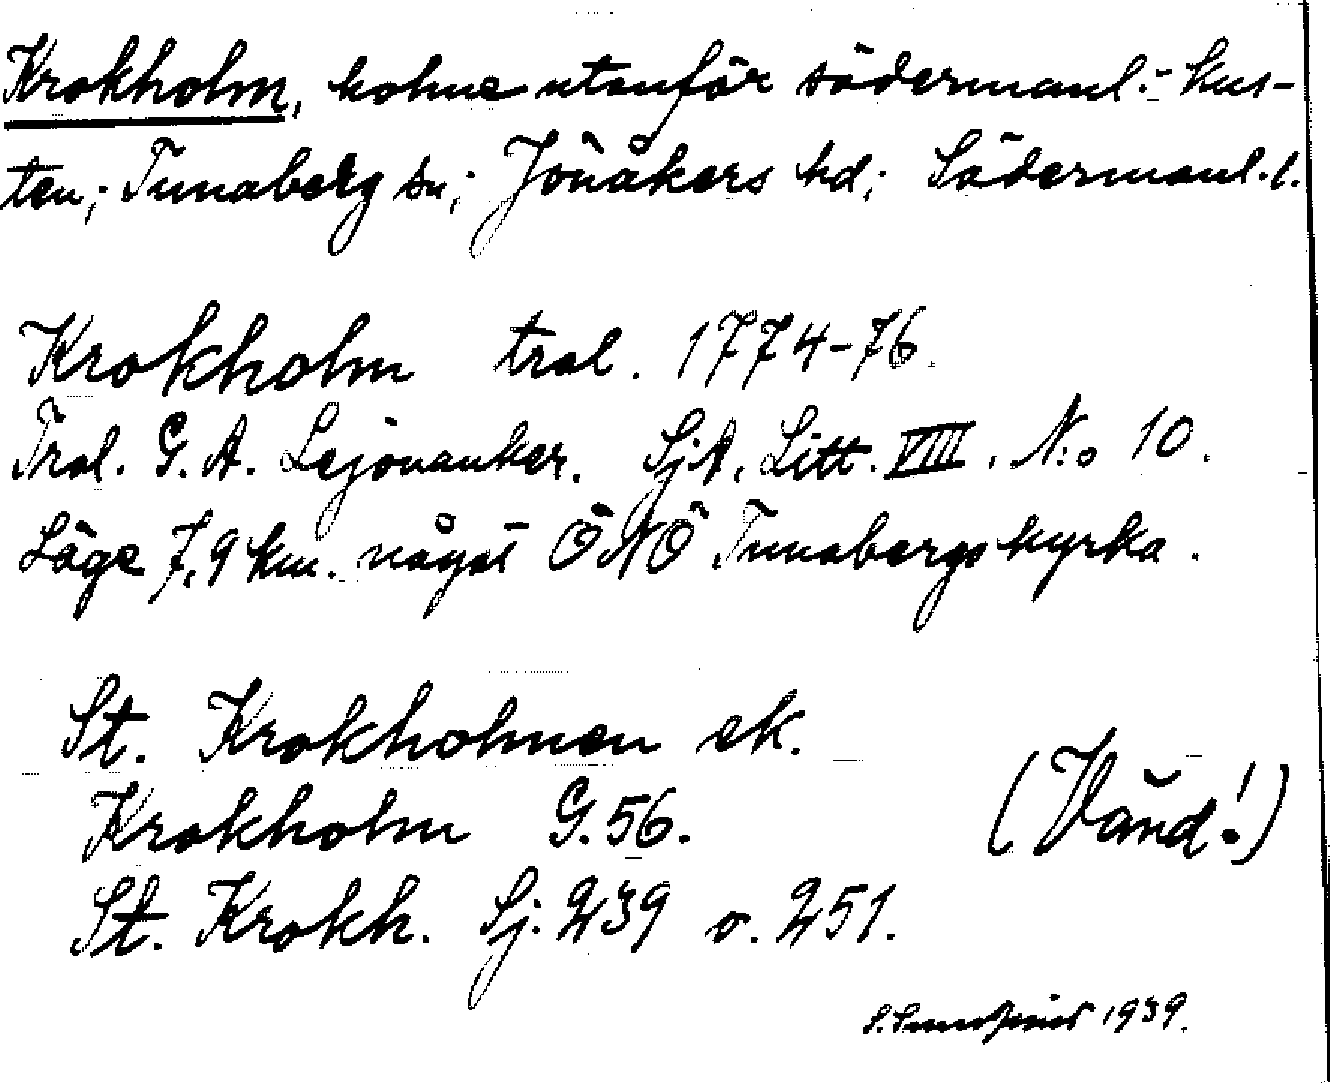 Krokholm, holme utanför södermanl.- kus-
ten; Tunaberg sn; Jönåkers hd; Södermanl. l.
Krokholm tral. 1774-76.
Tral. G. A. Lejonanker. SjA. Litt. VIII. N:o 10.
Läge 7,9 km. något ÖNÖ Tunabergs kyrka.
St. Krokholmen ek.
Krokholm G. 56.
(Vänd!)
St. Krokh. Sj. 239 o. 251.
1939.